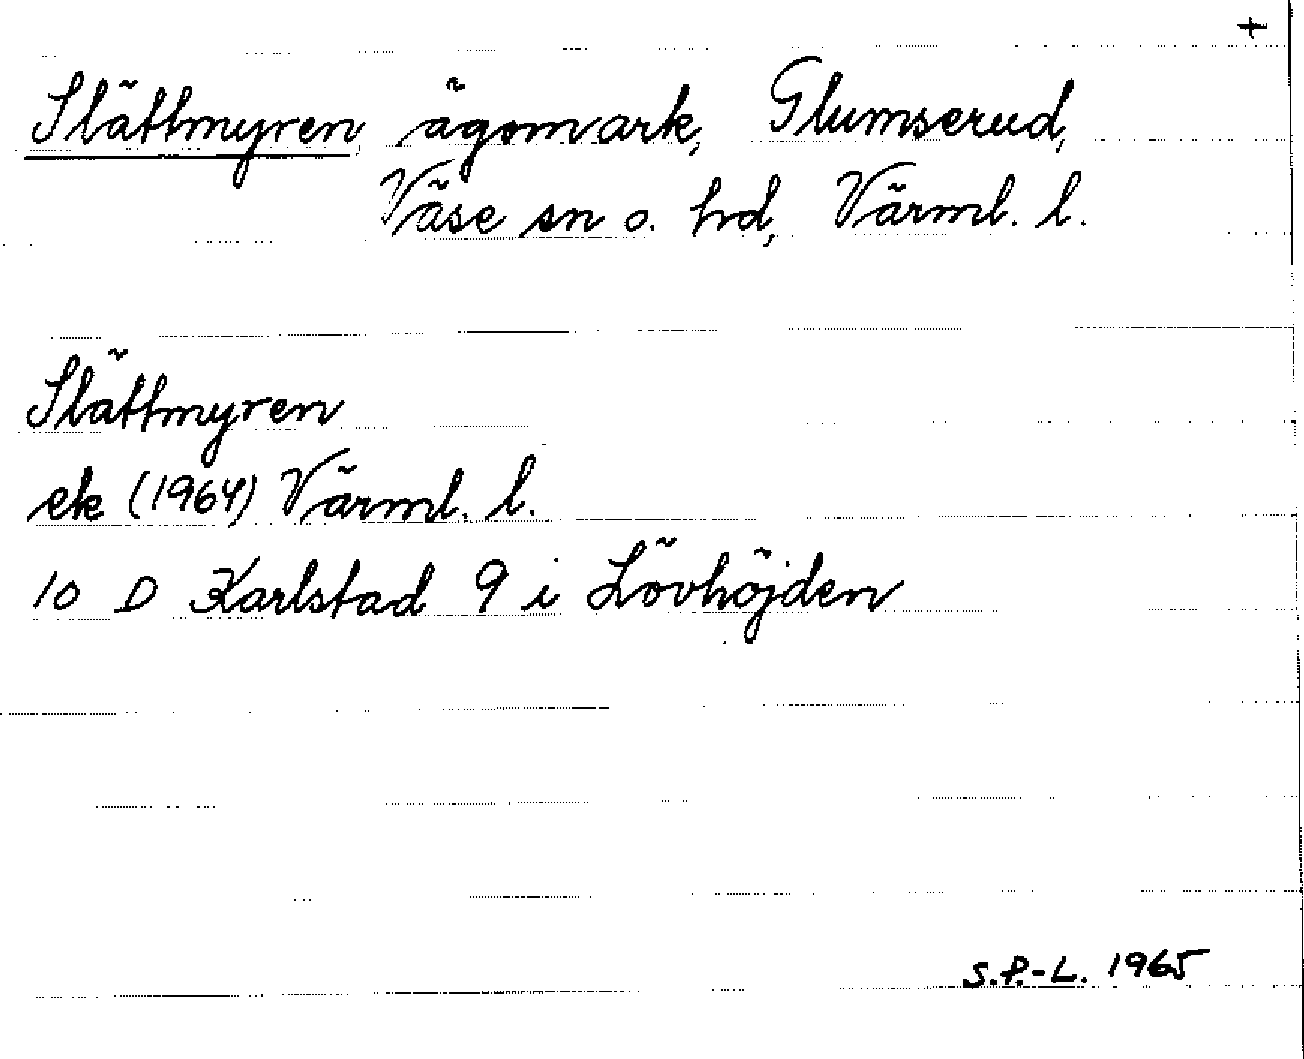 +
Slättmyren ägomark, Glumserud,
Väse sn o. hd, Värml. l.
Slättmyren
ek (1964) Värml. l.
10 D Karlstad 9 i Lövhöjden
S.P.-L. 1965